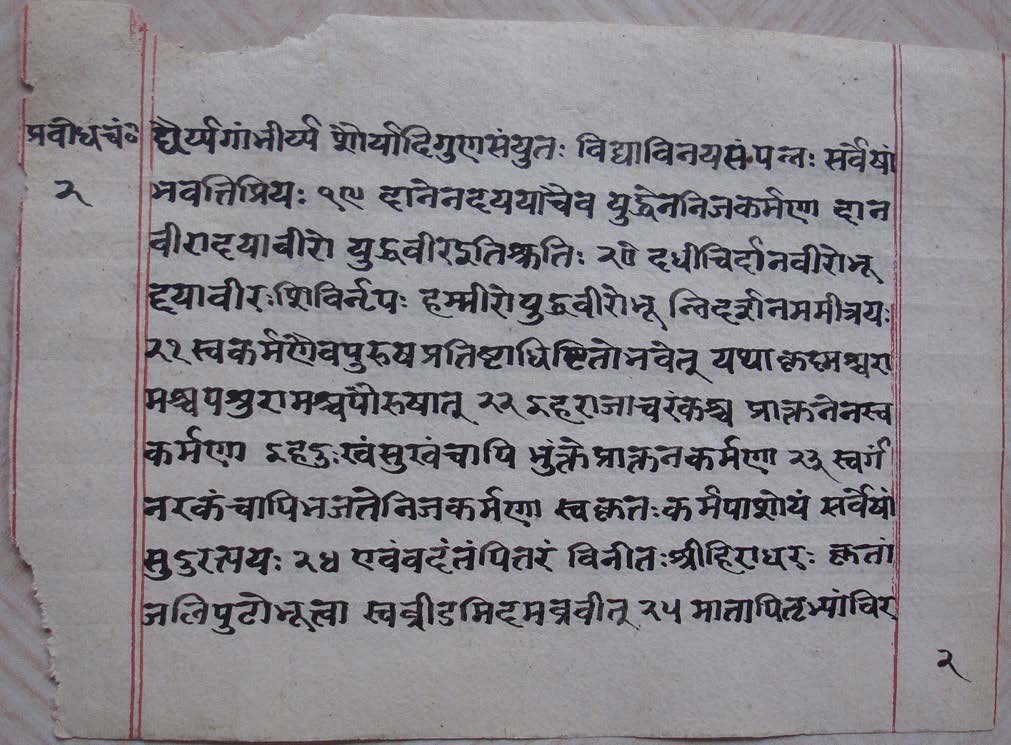 प्रबोधचं॰ द्धैर्य्यगांभीर्य्य शौर्यादिगुणसंयुतः विद्याविनयसंपन्नः सर्वेषां
२ भवत्तिप्रियः १९ दानेनदययाचैव युद्धेननिजकर्मणा दान
वीरोदयावीरो युद्धवीरइतिस्मृतिः २० दधीचिर्दानवीरोभू
द्दयावीरःशिविर्नृपः हम्मीरोयुद्धवीरोभू न्निदर्शनममीत्रयः
२१ स्वकर्मणैवपुरुष प्रतिष्टाधिष्टितोभवेत् यथाकृष्णश्चरा
मश्चपर्शुरामश्चपौरुषात् २२ इहराजाचरंकश्च प्राक्तनेनस्व
कर्मणा इहदुःखंसुखंचापि भुंक्तेप्राक्तनकर्मणा २३ स्वर्गं
नरकंचापिभजतेनिजकर्मणा स्वकृतःकर्मपाशोयं सर्वेषां
सुदुरत्ययः २४ एवंवदंतंपितरं विनीतःश्रीहिराधरः कृतां
जलिपुटोभूत्वा सव्रीडमिदमब्रवीत् २५ मातापितृभ्यांविर
२